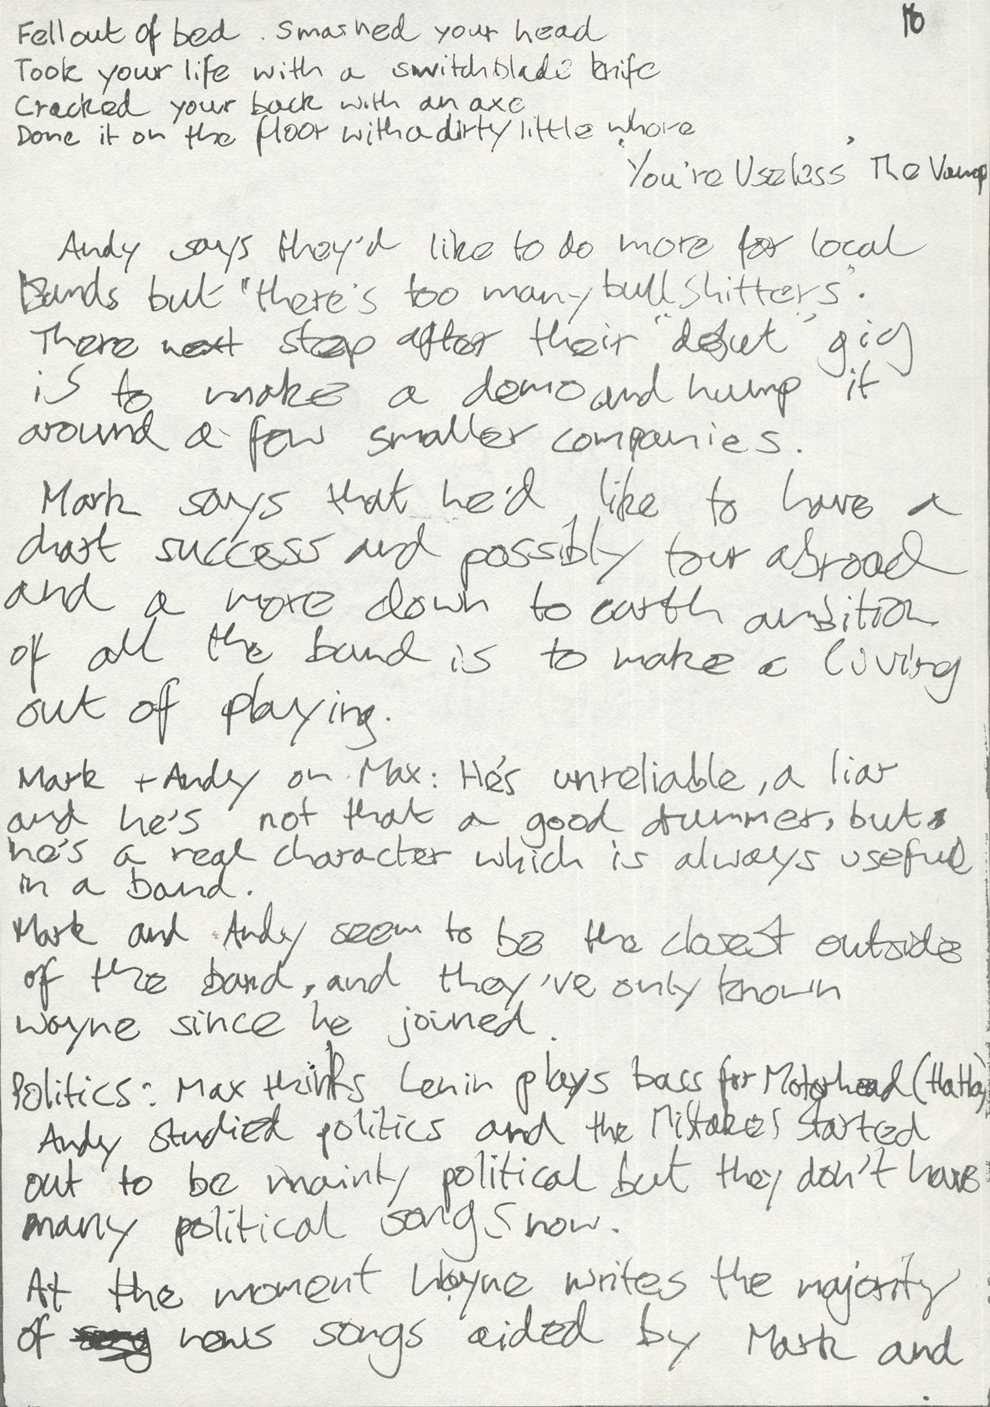 16
Fell out of bed. Smashed your head
Took your life with a switchblade knife
Cracked your back with an axe
Done it on the floor with a dirty little whore
'You're Useless' The Vamp
Andy says they'd like to do more for local
Bands but "there's too many bullshitters".
There next step after their "debut" gig
is to make a demo and hump it
around a few smaller companies.
Mark says that he'd like to have a
chart success and possibly tour abroad
and a more down to earth ambition
of all the band is to make a living
out of playing.
Mark + Andy on Max: He's unreliable, a liar
and he's not that a good drummer, but
he's a real character which is always useful
in a band.
Mark and Andy seem to be the closest outside
of the band, and they've only known
Wayne since he joined.
Politics: Max thinks Lenin plays bass for Motorhead (HaHa)
Andy studied politics and the Mistakes started
out to be mainly political but they don't have
many political songs now.
At the moment Wayne writes the majority
of news songs aided by Mark and